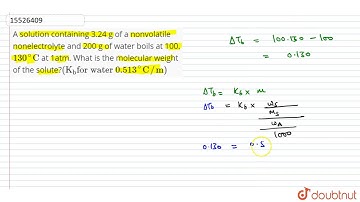 15526409
A solution containing 3.24 g of a nonvolatile
nonelectrolyte and 200 g of water boils at 100.
130°C at 1atm. What is the molecular weight
of the solute?(K_b for water 0.513°C/m)
ΔT_b = 100.130 - 100
= 0.130
ΔT_b = K_b × m
ΔT_b = K_b × w_s
M_s
w_A
1000
0.130 = 0.5
doubtnut